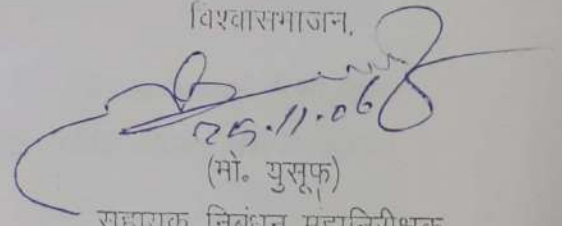 विश्वासभाजन,
25.11.06
(मो॰ युसूफ)
सहायक निबंधन महानिरीक्षक